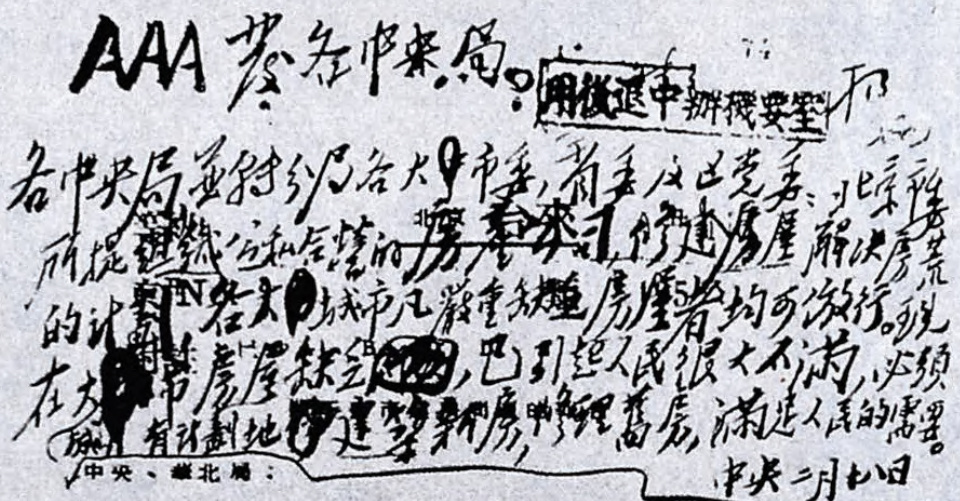 AAA 发各中央局。
用後退中辦機要室
各中央局並转分局各大市委,省委及区党委:北京市委
所提組織公私合营的房屋公司,修建房屋解决房荒
的计劃,各大城市凡嚴重缺乏房屋者均可仿行。现
在大城市房屋缺乏,已引起人民很大不满,必须
有计劃地建筑新房,修理舊房,满足人民的需要。
中央 二月十八日
中央、華北局: